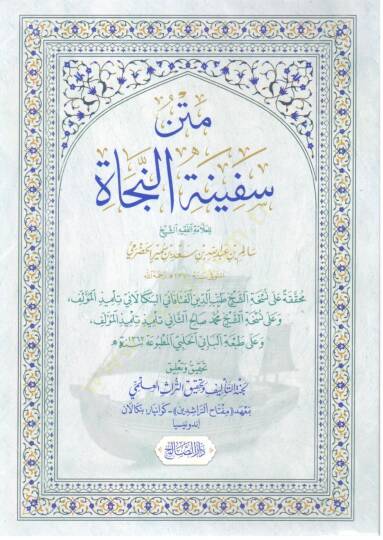 متن
سفينة النجاة
للعلامة الفقيه الشيخ
سالم بن عبد الله بن سعد بن سمير الحضرمي
المتوفى سنة ١٢٧٠ هـ رحمه الله
محققة على نسخة الشيخ طيب الدين الفافاني البنكالاني تلميذ المؤلف،
وعلى نسخة الشيخ محمد صالح الثاني تلميذ تلميذ المؤلف،
وعلى طبعة البابي الحلبي المطبوعة
تحقيق وتعليق
لجنة التأليف وتحقيق التراث العلمي
بمعهد «مفتاح الراشدين» كوانيار، بنكالان
إندونيسيا
دار الصالح